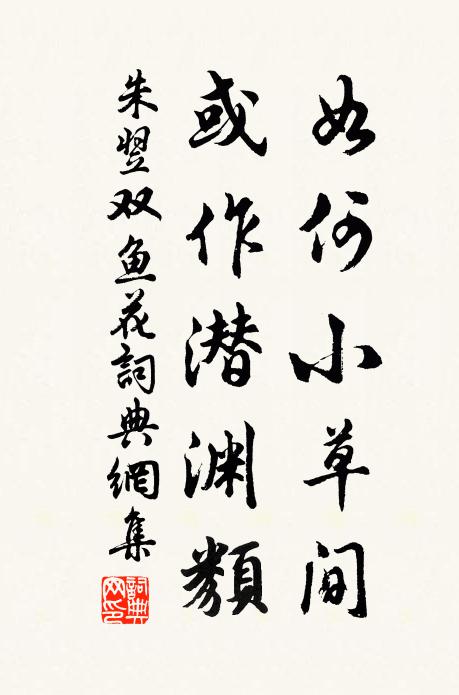 如何小草间
或作潜渊類
朱翌双鱼花詞典網集
詞典網印